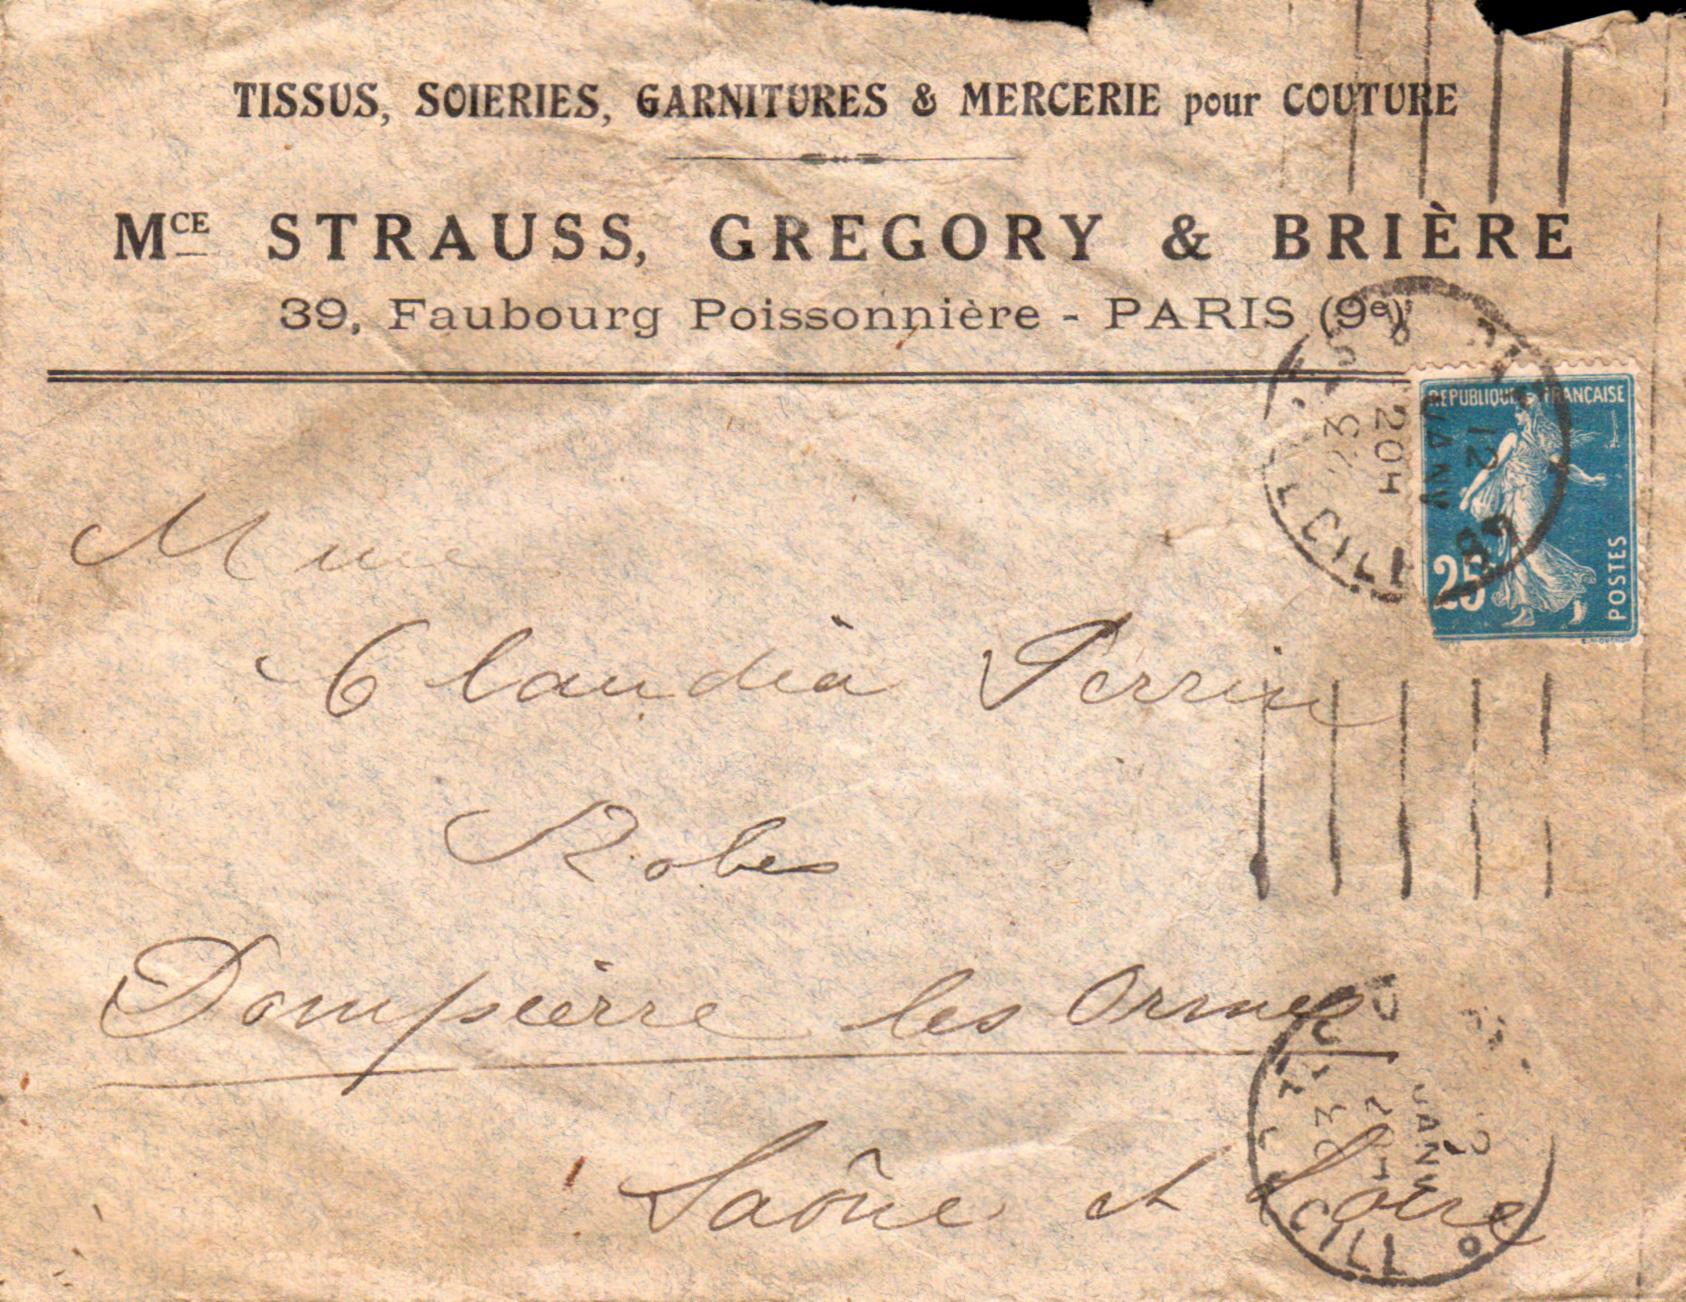 TISSUS, SOIERIES, GARNITURES & MERCERIE pour COUTURE
Mce STRAUSS, GREGORY & BRIÈRE
39, Faubourg Poissonnière - PARIS (9e)
REPUBLIQUE FRANÇAISE
25
POSTES
12
JANV
20H
23
Mme
Claudia Perrin
Robes
Dompierre les Ormes
Saône et Loire
JANV
23